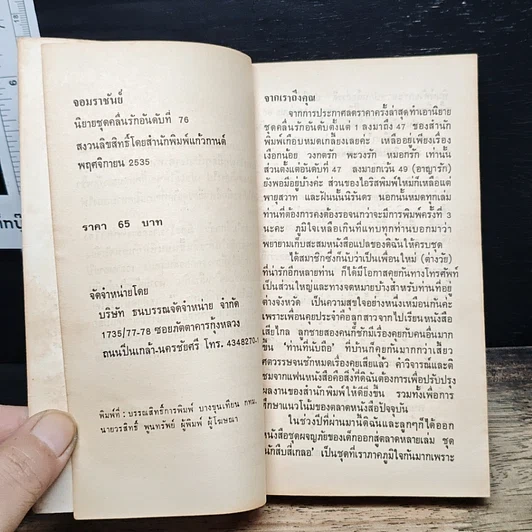 จอมราชันย์
นิยายชุดคลื่นรักอันดับที่ 76
สงวนลิขสิทธิ์โดยสำนักพิมพ์แก้วกานต์
พฤศจิกายน 2535
ราคา 65 บาท
จัดจำหน่ายโดย
บริษัท ธนบรรณจัดจำหน่าย จำกัด
1735/77-78 ซอยภัตตาคารกุ้งหลวง
ถนนปิ่นเกล้า-นครชัยศรี โทร. 4348270-
พิมพ์ที่ : บรรณสิทธิ์การพิมพ์ บางขุนเทียน กทม.
นายวรสิทธิ์ พูนทรัพย์ ผู้พิมพ์ ผู้โฆษณา
จากเราถึงคุณ
จากการประกาศลดราคาครั้งล่าสุดทำเอานิยาย
ชุดคลื่นรักอันดับตั้งแต่ 1 ลงมาถึง 47 ของสำนัก
พิมพ์เกือบหมดเกลี้ยงเลยค่ะ เหลืออยู่เพียงเรื่อง
เงือกน้อย วงกตรัก พะวงรัก หมอกรัก เท่านั้น
ส่วนตั้งแต่อันดับที่ 47 ลงมายกเว้น 49 (อาญารัก)
ยังพอมีอยู่บ้างค่ะ ส่วนของไอริสพิมพ์ใหม่ก็เหลือแต่
พายุสวาท และฝันนั้นนิรันดร นอกนั้นหมดทุกเล่ม
ท่านที่ต้องการคงต้องรอจนกว่าจะมีการพิมพ์ครั้งที่ 3
นะคะ ภูมิใจเหลือเกินที่แทบทุกท่านบอกมาว่า
พยายามเก็บสะสมหนังสือแปลของดิฉันให้ครบชุด
ได้สมาชิกซึ่งก็นับว่าเป็นเพื่อนใหม่ (ต่างวัย)
ที่น่ารักอีกหลายท่าน ก็ได้มีโอกาสคุยกันทางโทรศัพท์
เป็นส่วนใหญ่และทางจดหมายบ้างสำหรับท่านที่อยู่
ต่างจังหวัด เป็นความสุขใจอย่างหนึ่งเหมือนกันค่ะ
เพราะเพื่อนคุยประจำคือลูกสาวจากไปเรียนหนังสือ
เสียไกล ลูกชายสองคนก็ชักมีเรื่องคุยกับคนอื่นมาก
ขึ้น 'ท่านที่นับถือ' ที่บ้านก็คุยกันมากว่าเสี้ยว
ศตวรรษจนชักหมดเรื่องคุยเสียแล้ว คำวิจารณ์และติ
ชมจากแฟนหนังสือคือสิ่งที่ดิฉันต้องการเพื่อปรับปรุง
ผลงานของสำนักพิมพ์ให้ดียิ่งขึ้น รวมทั้งเพื่อการ
ศึกษาแนวโน้มของตลาดหนังสือปัจจุบัน
ในช่วงปีที่ผ่านมานี้ดิฉันและลูกๆก็ได้ออก
หนังสือชุดผจญภัยของเด็กออกสู่ตลาดหลายเล่ม ชุด
นักสืบสี่เกลอ' เป็นชุดที่เราภาคภูมิใจกันมากเพราะ